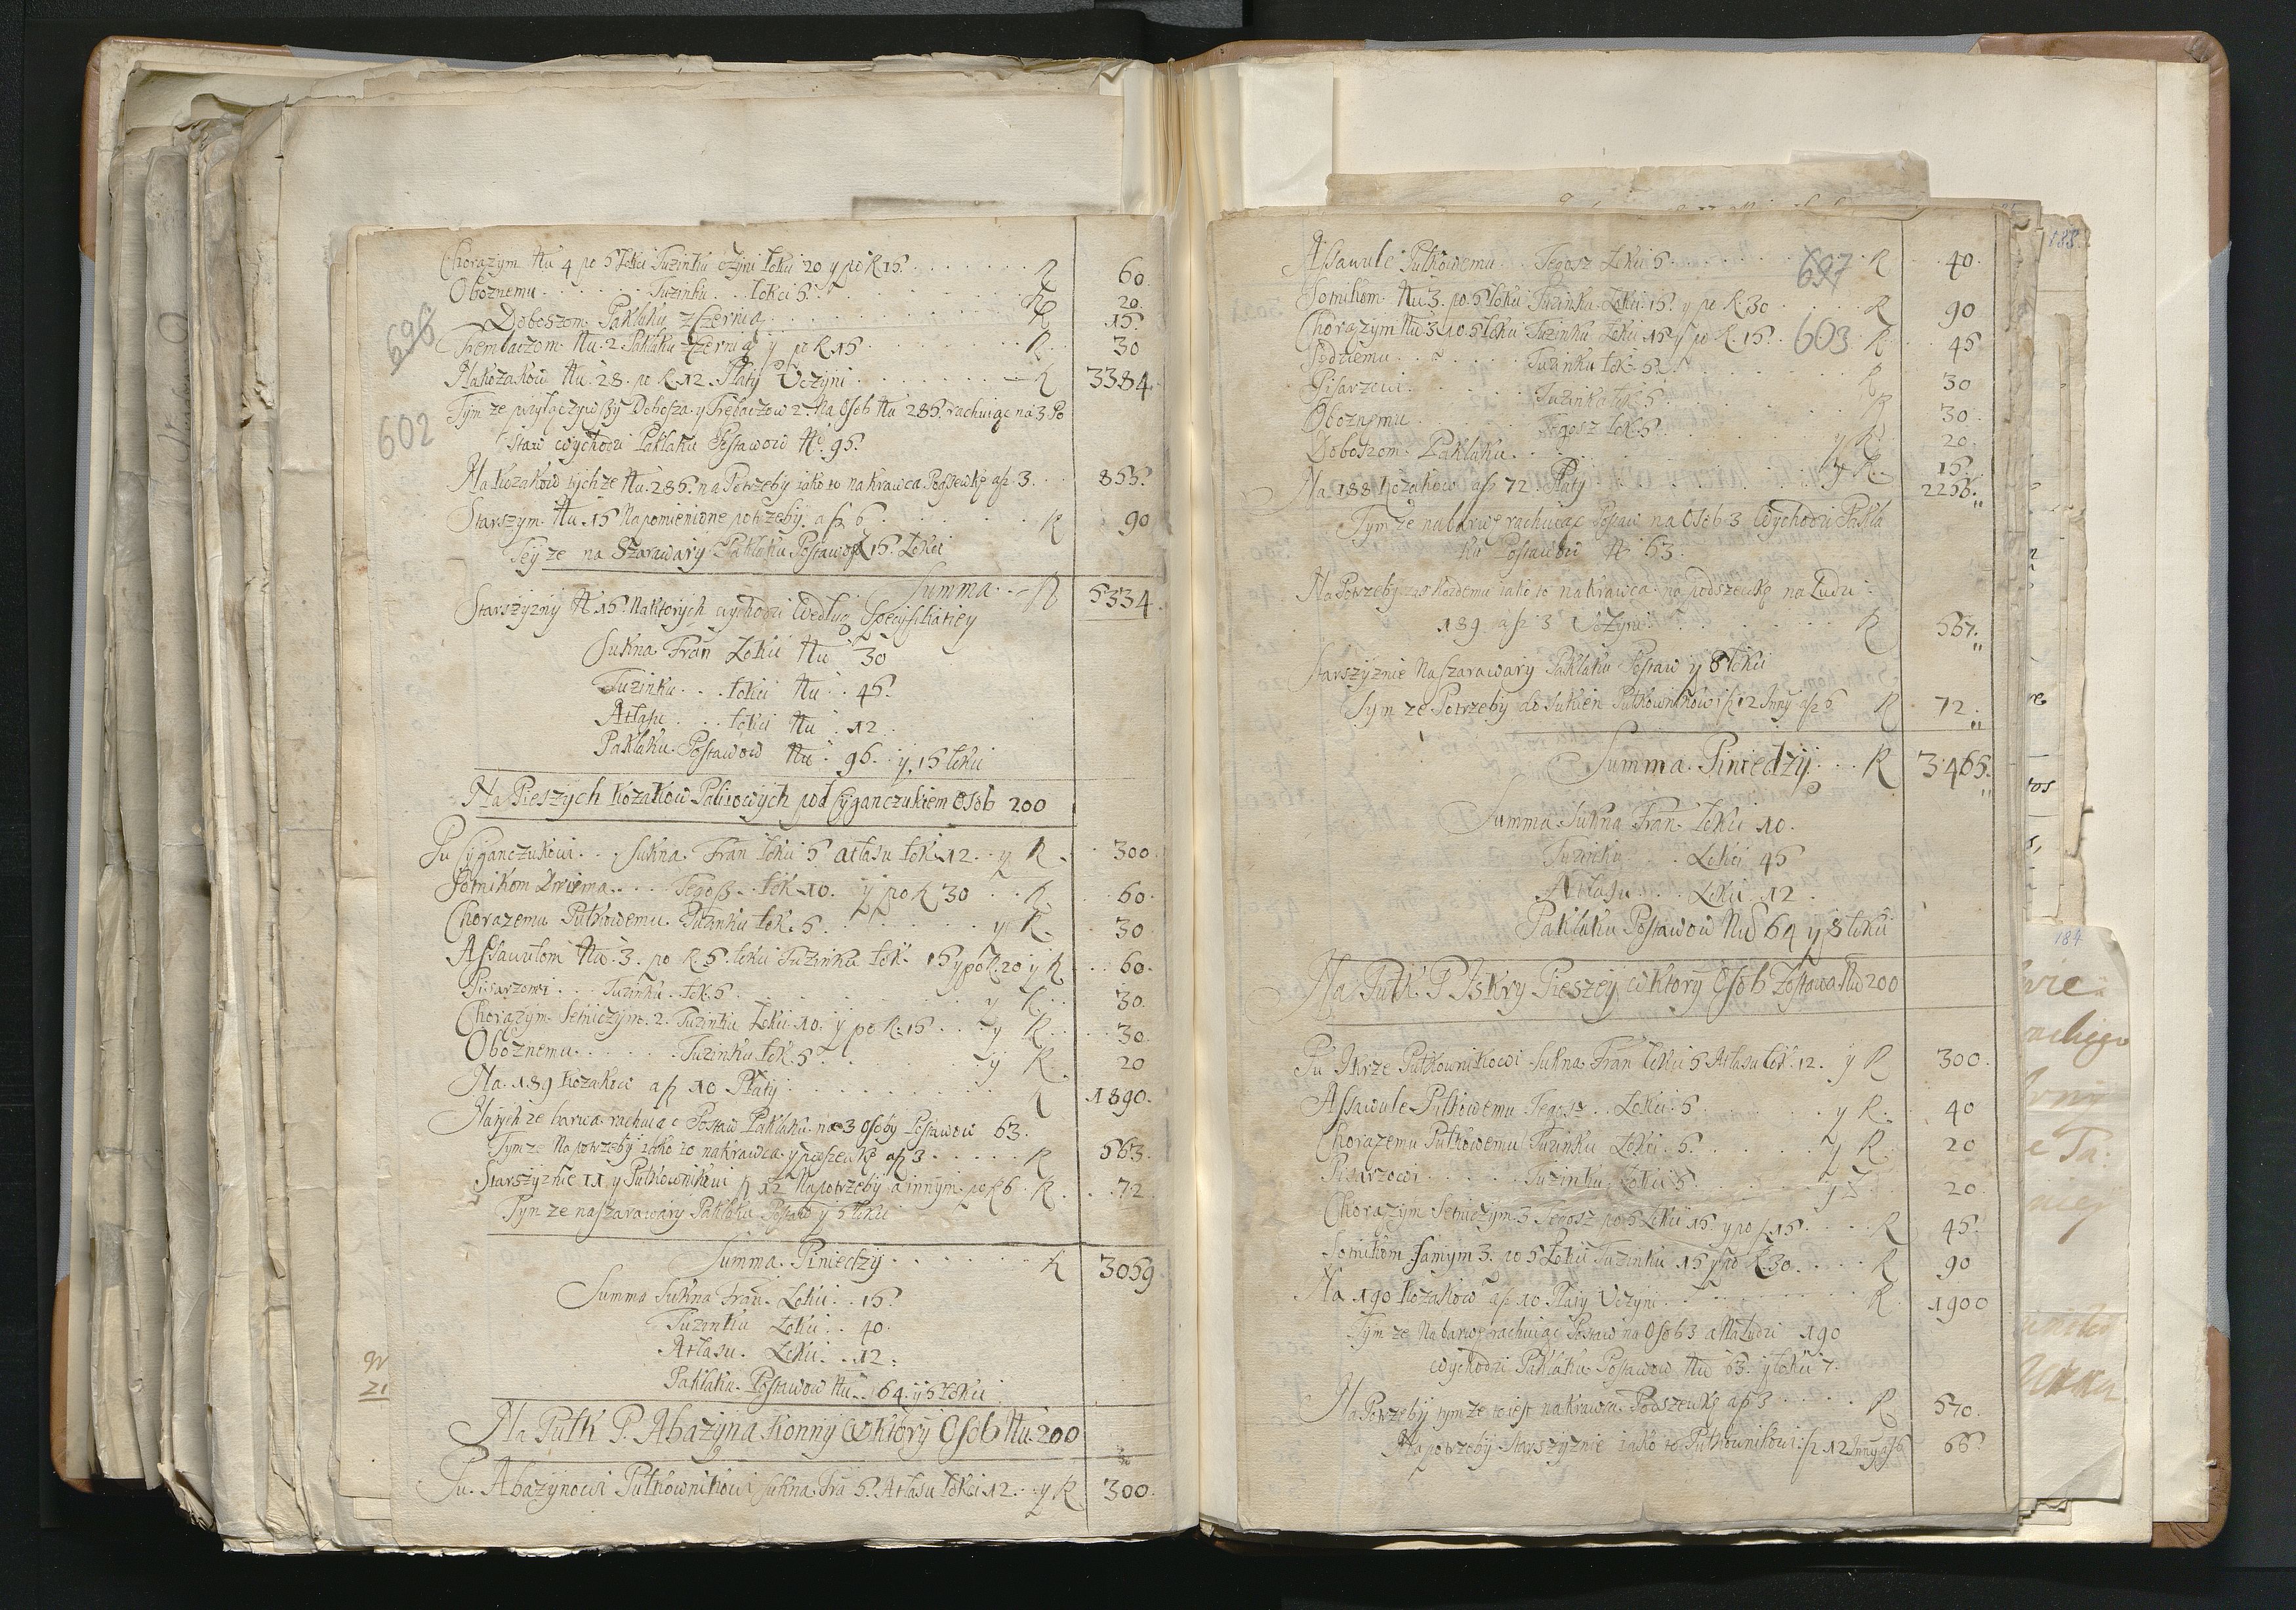 Chorązym Nu 4 po 5 łokci Tuzinku czyni łokci 20 y po R 15 R 60
Oboznemu Tuzinku łokci 5 R 20
Doboszom Pakłaku z Czernią R 15
696
Trembaczom Nu. 2 Pakłaku z Czernią y po R 15 R 30
Na Kozaków Nu. 28 po R. 12. Płaty Uczyni R 3384
Tym ze przyłączywszy Dobosza y Trębaczow 2. Na Osob Nu 285. rachuiąc na 3 Po
602
staw wychodzi Pakłaku Postawow No. 95.
Na Kozakow tychze Nu. 285. na Potrzeby iako to na Krawca Podszewkę a R 3. 855
Starszym Nu 15 Na pomienione potrzeby a R 6 R 90
Tey ze na Szarawary Pakłaku Postaw 15. Łokci
Summa R 5334
Starszyzny N 15. Na ktorych wychodzi Wedlug Specyfikatiey
Sukna Fran Łokci Nu 30
Tuzinku łokci Nu 45
Atłasu łokci Nu 12
Pakłaku Postawow Nu 96 y 15 łokci
Na Pieszych Kozakow Paliiowych pod Cyganczukiem Osob 200
Pu Cyganczukowi Sukna Fran łokci 5 atłasu łok 12 y R 300
Sotnikom Dwiema Tegosz łok 10 y po R 30 R 60
Chorązemu Pułkowemu Tuzinku łok. 5 y R. 30
Assaułom Nu. 3. po R. 5. łokci Tuzinku łok. 15 y po R. 20 y R 60
Pisarzowi Tuzinku łok. 5 y R. 30
Chorązym Setniczym 2. Tuzinku Łokci 10. y po R. 15 y R. 30
Oboznemu Tuzinku łok. 5 y R 20
Na 189 Kozakow a R 10 Płaty R 1890
Na tych ze barwa rachuiąc Postaw Pakłaku na 3 Osoby Postawow 63.
Tym ze Na potrzeby iako to na krawca y podszewkę a R 3 R 563
Starszyznie 11 y Pułkownikowi R 12 Na potrzeby a innym po R 6 R. 72
Tym ze na szarawary Pakłaku Postaw y 5 łokci
Summa Pieniedzy R 3059
Summa Sukna Fran. Łokci 15
Tuzinku Łokci 40
Atłasu. Łokci 12
Pakłaku Postawow Nu 64 y 5 Łokci
Na Pułk P. Abazyna Konny W ktory Osob Nu. 200
Pu. Abazynowi Pułkownikowi Sukna Fra 5. Atłasu łokci 12 y R 300
Assawule Pułkowemu Tegosz Łokci 5 697 R 40
Sotnikom Nu 3. po 5 łokci Tuzinku Łokci 15 y po R. 30 R 90
Chorązym Nu 3 po 5 łokci Tuzinku łokci 15 y po R. 15 603 R 45
Sędziemu Tuzinku łok. 5 R 30
Pisarzowi Tuzinku łok 5 R 30
Oboznemu Tegosz łok 5 y R 20
Doboszom Pakłaku y R. 15
Na 188 Kozakow a R 72 Płaty 2256
Tym ze na barwę rachuiąc Postaw na Osob 3 Wychodzi Pakła
ku Postawow N 63.
Na Potrzeby zas Kozdemu iako to na krawca na podszewkę na Ludzi
189 a R 3 Uczyni R 567
Starszyznie Na szarawary Pakłaku Postaw y 8 łokci
Tym ze Potrzeby do sukien Pułkownikowi R 12 Inny a R 6 R 72
Summa Pieniedzy R 3465
Summa Sukna Fran łokci 10
Tuzinku Łokci 45
Atłasu Łokci 12
Pakłaku Postawow Nu 64 y 8 łokci
Na Pułk P Iskry Pieszey w ktory Osob Zostawa Nu 200
Pu Iskrze Pułkownikowi Sukna Fran Łokci 5 Atłasu łok. 12. y R 300
Assawule Pułkowemu Tegosz Łokci 5 y R. 40
Chorązemu Pułkowemu Tuzinku Łokci 5 y R. 20
Pisarzowi Tuzinku Łokci 5 y 20
Chorązym Setniczym 3 Tegosz po 5 Łokci 15 y po R 15 R 45
Sotnikom samym 3. po 5 Łokci Tuzinku 15 y po R. 30 R 90
Na 190 Kozakow a R 10 Płaty Uczyni R 1900
Tym ze Na barwę rachuiąc Postaw na Osob 3 a Na Ludzi 190
wychodzi Pakłaku Postawow Nu 63 y łokci 7.
Na Potrzeby tym ze to iest na krawca Podszewkę a R 3 R 570
Na potrzeby starszyznie iako to Pułkownikowi R 12 Inny a R 6 66
188
184